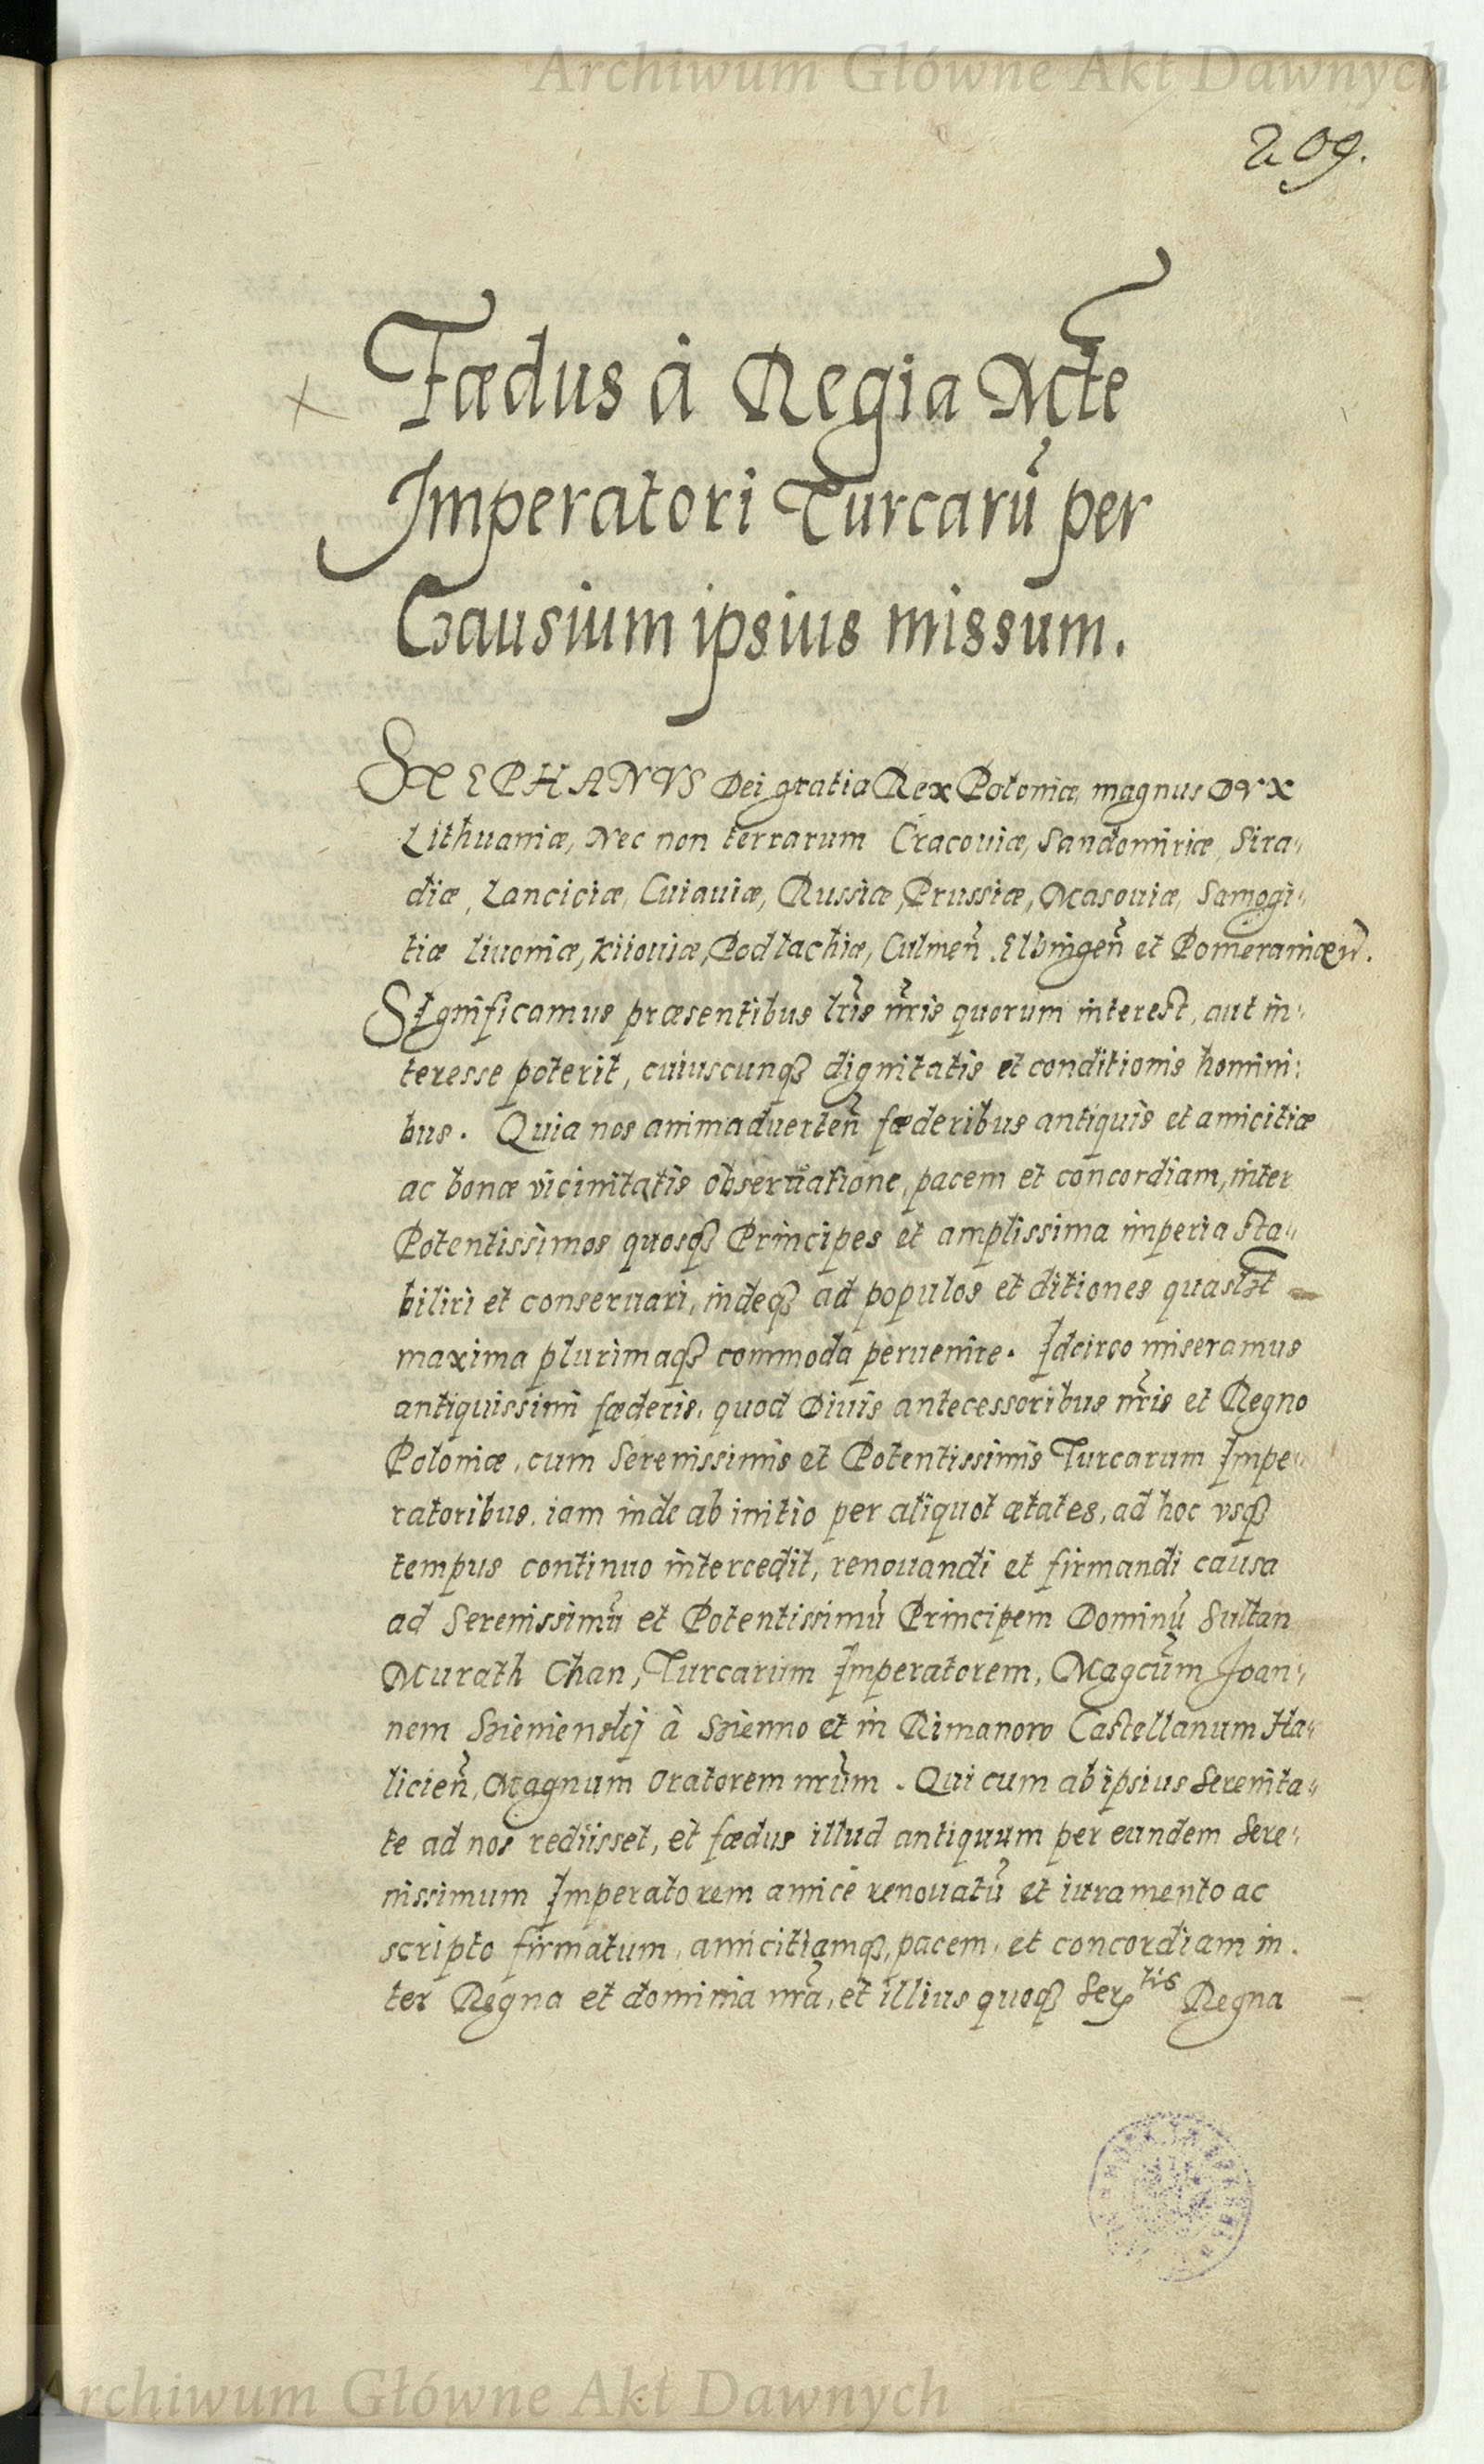 Archiwum Główne Akt Dawnych
209.
Fædus à Regia Mcte
Imperatori Turcarũ per
Causium ipsius missum.
STEPHANVS Dei gratia Rex Poloniæ, magnus DVX
Lithuaniæ, Nec non terrarum Cracouiæ, Sandomiriæ, Sira„
diæ, Lanciciæ, Cuiauiæ, Russiæ, Prussiæ, Masouiæ, Samogi„
tiæ Liuoniæ, Kiiouiæ, Podlachiæ, Culmeñ. Elbingeñ et Pomeraniæ
SIgnificamus præsentibus lr̃is nr̃is quorum interest, aut in„
teresse poterit, cuiuscunq3 dignitatis et conditionis homini:
bus. Quia nos animaduerteñ fæderibus antiquis et amicitiæ
ac bonæ vicinitatis obseruatione, pacem et concordiam, inter
Potentissimos quosq3 Principes et amplissima imperia sta„
biliri et conseruari, indeq3 ad populos et ditiones
maxima plurimaq3 commoda peruenire. Idcirco miseramus
antiquissimi fæderis, quod Diuis antecessoribus nr̃is et Regno
Poloniæ, cum Serenissimis et Potentissimis Turcarum Impe„
ratoribus, iam inde ab initio per aliquot ætates, ad hoc vsq3
tempus continuo intercedit, renouandi et firmandi causa
ad Serenissimũ et Potentissimũ Principem Dominũ Sultan
Murath Chan, Turcarum Imperatorem, Magcũm Joan„
nem Szienienskj à Szienno et in Rimanow Castellanum Ha„
licieñ, Magnum Oratorem nr̃um. Qui cum ab ipsius Serenita„
te ad nos rediisset, et fædus illud antiquum per eundem Sere„
nissimum Imperatorem amicè renouatũ et iuramento ac
scripto firmatum, amicitiamq3, pacem, et concordiam in.
ter Regna et dominia nr̃a, et illius quoq3 Ser^tis Regna
Archiwum Główne Akt Dawnych